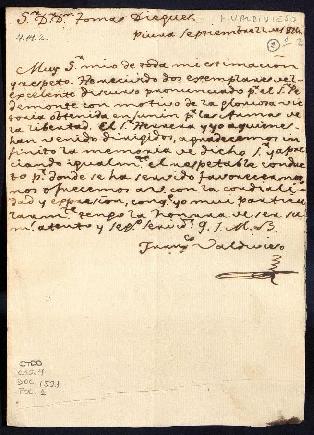 S.r D.r D.n Tomas Dieguez
F. VALDIVIESO
Piura Septiembre 22 de 1824
2
Muy S.r mio de toda mi estimacion
y respeto. He recivido dos exemplares del
excelente discurso pronunciado p.r el S.r Pe
demonte con motivo de la gloriosa vic
toria obtenida en Junin p.r las armas de
la libertad. el S.r Herrera y yo a quienes
han venido dirigidos, agradecemos in
finito la memoria de dicho S.r y apre
ciando igualm.te el respetable conduc
to p.r donde se ha servido favorecernos
nos ofrecemos a V. con la cordiali
dad y expresion, con q.e yo mui particu
larm.te tengo la honrra de ser su
m.s atento y seg.o serv.or Q. S. M. B.
Fran.co Valdivieso
DOC 1521
FOL. 1